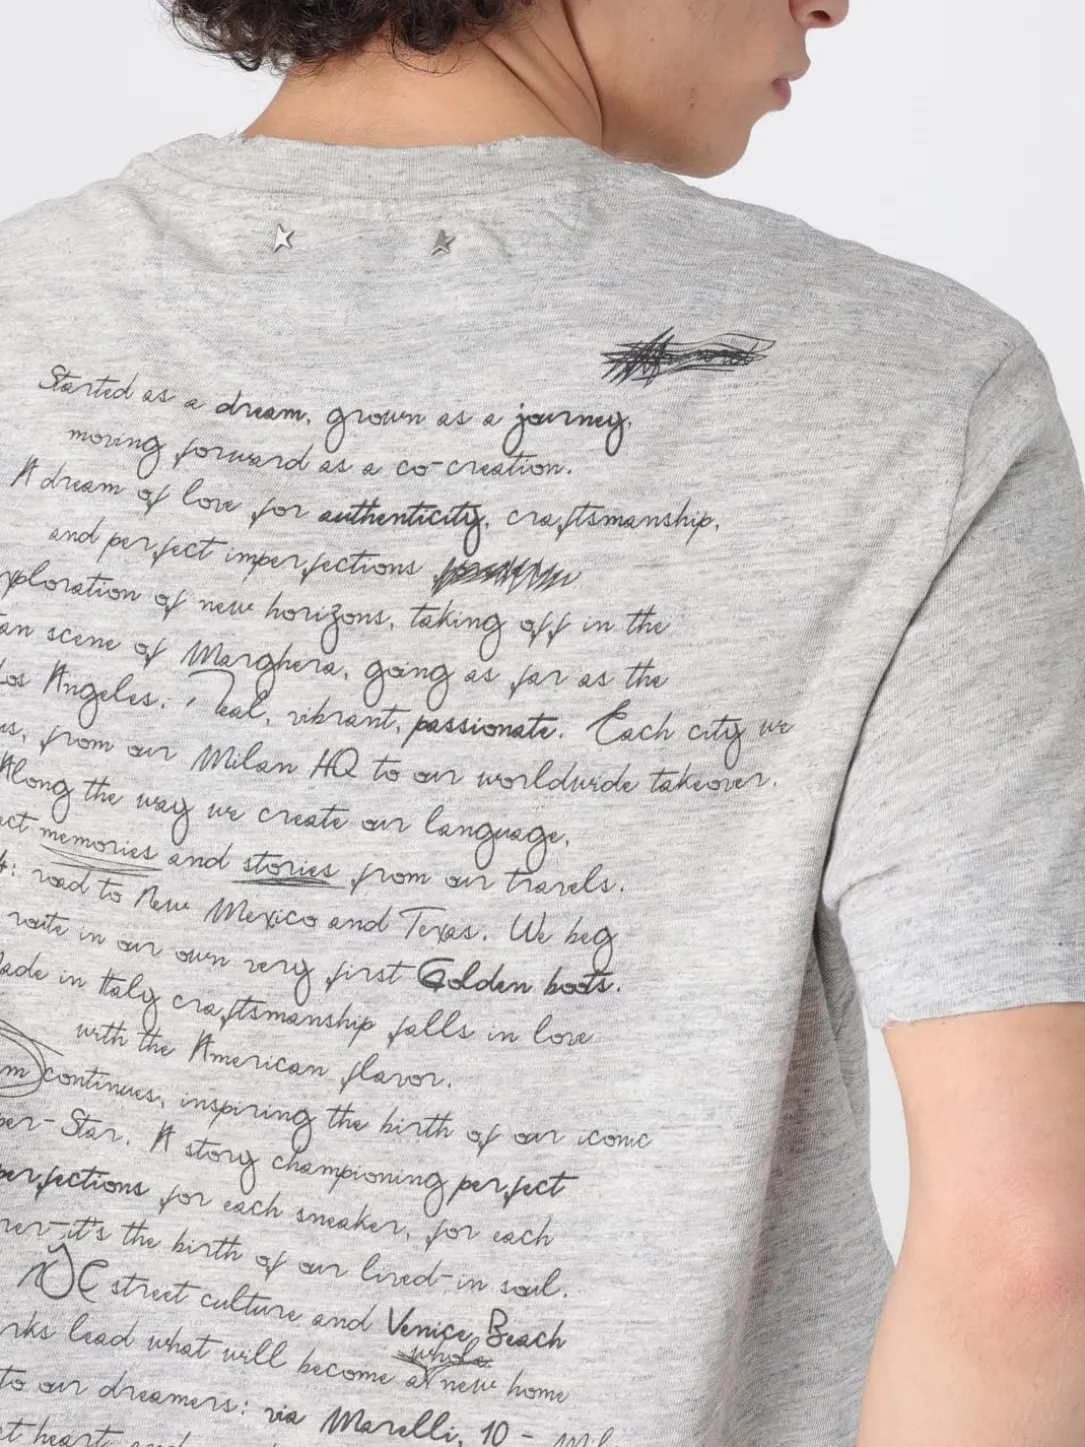 Started as a dream, grown as a journey,
moving forward as a co-creation.
A dream of love for authenticity, craftsmanship,
and perfect imperfections
xploration of new horizons, taking off in the
an scene of Marghera, going as far as the
Los Angeles: Real, vibrant, passionate. Each city we
us, from our Milan HQ to our worldwide takeover.
Along the way we create our language,
ct memories and stories from our travels.
4: road to New Mexico and Texas. We beg
route in our own very first Golden boots.
ade in Italy craftsmanship falls in love
with the American flavor.
m continues, inspiring the birth of our iconic
per-Star. A story championing perfect
perfections for each sneaker, for each
rer-it's the birth of our lived-in soul.
street culture and Venice Beach
whole
rks lead what will become a new home
to our dreamers: via Marelli, 10 -
t heart and